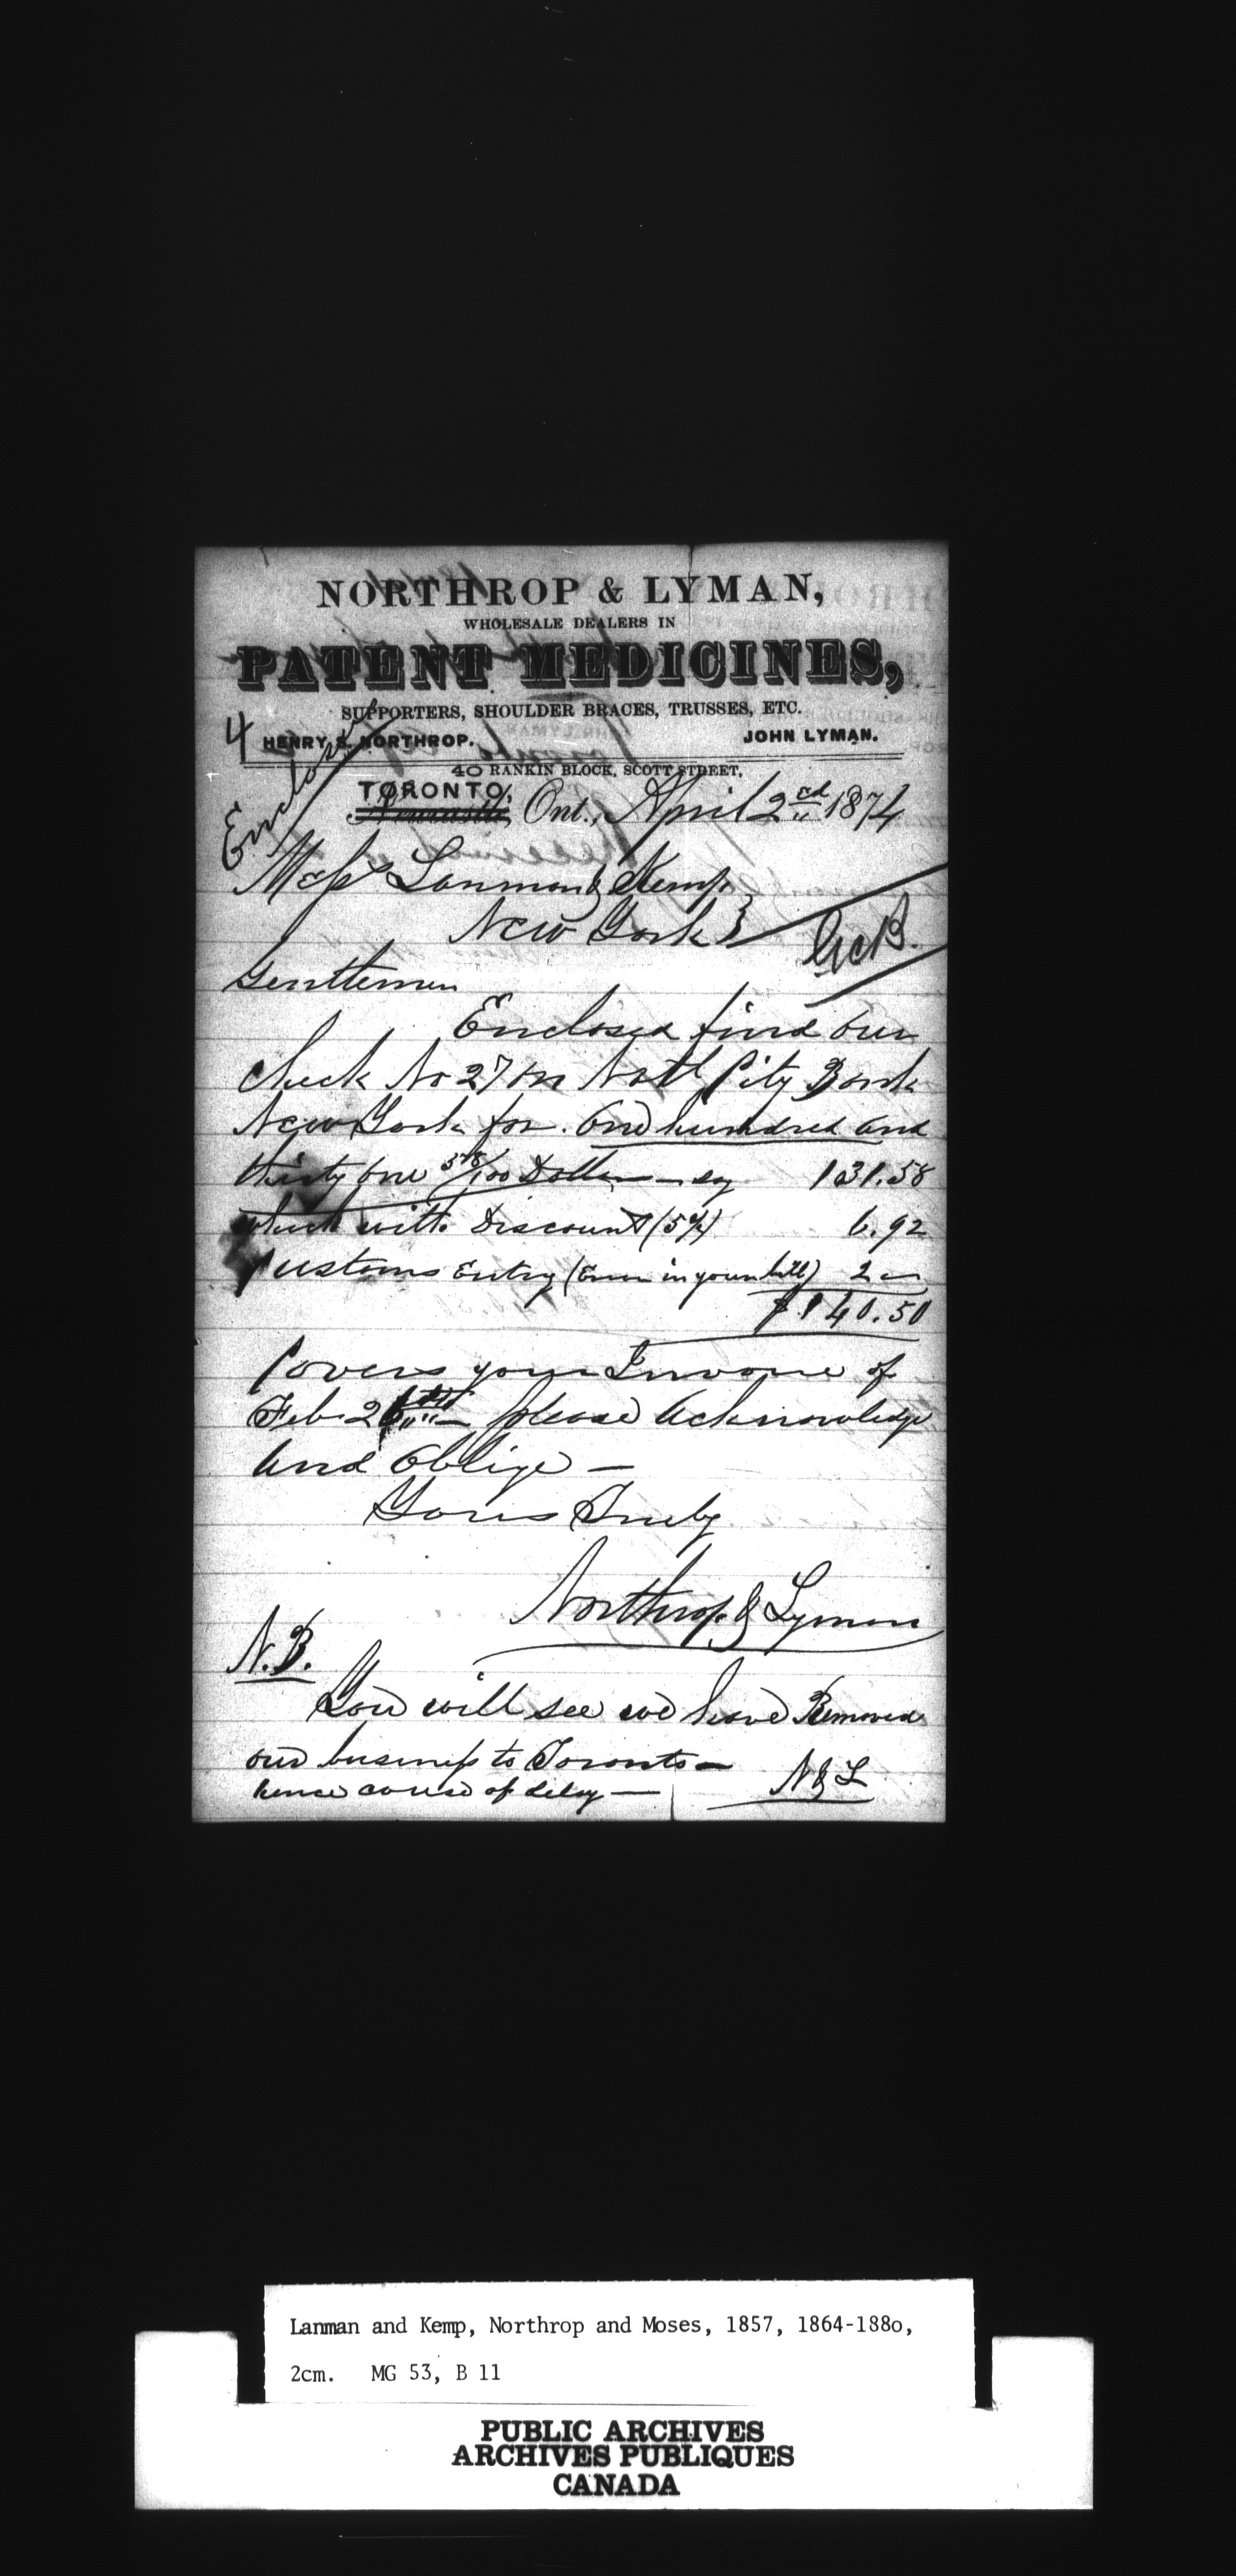 NORTHROP & LYMAN,
WHOLESALE DEALERS IN
PATENT MEDICINES,
SUPPORTERS, SHOULDER BRACES, TRUSSES, ETC.
4 HENRY S. NORTHROP. JOHN LYMAN.
40 RANKIN BLOCK, SCOTT STREET,
TORONTO,
Newcastle, Ont., April 2nd 1874
Enclosure
Mess Lanman & Kemp
New York
Gentlemen
Enclosed find our
Check No 27 on Natl City Bank
New York for One hundred and
thirty one 58/100 Dollars say 131.58
which with Discount (5%) 6.92
Customs Entry (Error in your bill) 2 —
$140.50
Covers your Invoice of
Feb 26 — please acknowledge
and Oblige —
Yours Truly
Northrop & Lyman
N.B.
You will see we have Removed
our business to Toronto —
hence cause of delay — N & L
Lanman and Kemp, Northrop and Moses, 1857, 1864-1880,
2cm. MG 53, B 11
PUBLIC ARCHIVES
ARCHIVES PUBLIQUES
CANADA